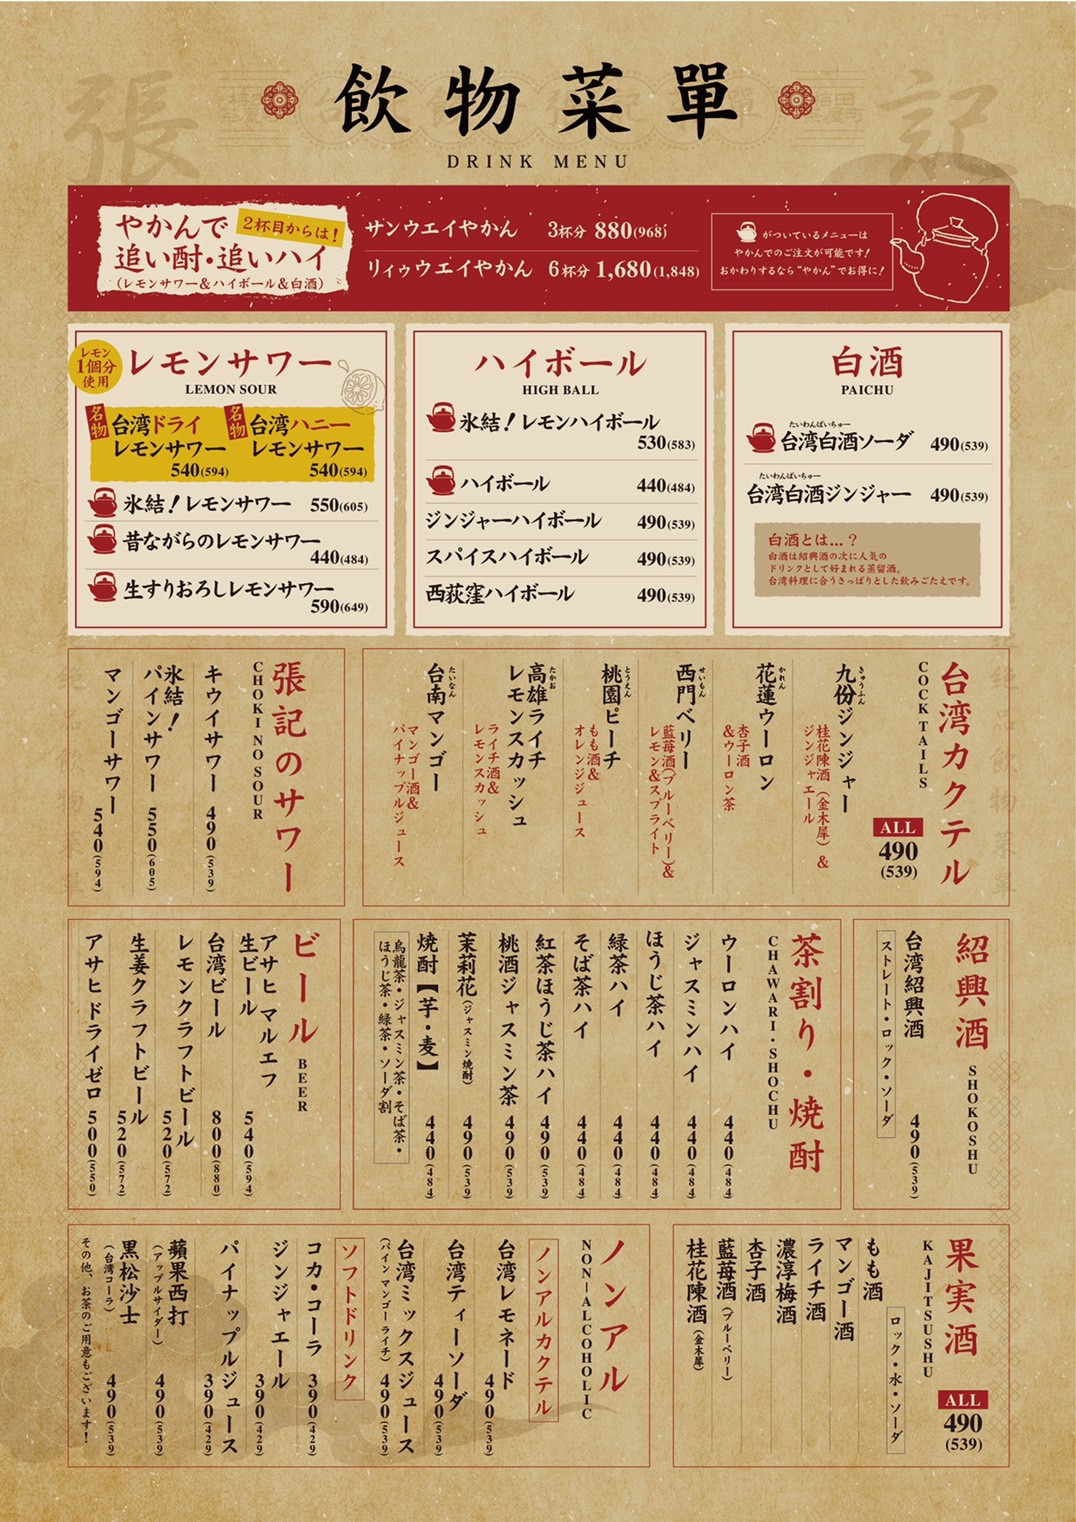 張
記
飲物菜單
DRINK MENU
やかんで
追い酎・追いハイ
(レモンサワー&ハイボール&白酒)
2杯目からは!
サンウエイやかん 3杯分 880(968)
リィゥウエイやかん 6杯分 1,680(1,848)
がついているメニューは
やかんでのご注文が可能です!
おかわりするなら"やかん"でお得に!
レモン
1個分
使用
レモンサワー
LEMON SOUR
名物
台湾ドライ
レモンサワー
540(594)
名物
台湾ハニー
レモンサワー
540(594)
氷結!レモンサワー 550(605)
昔ながらのレモンサワー
440(484)
生すりおろしレモンサワー
590(649)
ハイボール
HIGH BALL
氷結!レモンハイボール
530(583)
ハイボール 440(484)
ジンジャーハイボール 490(539)
スパイスハイボール 490(539)
西荻窪ハイボール 490(539)
白酒
PAICHU
たいわんぱいちゅー
台湾白酒ソーダ 490(539)
たいわんぱいちゅー
台湾白酒ジンジャー 490(539)
白酒とは…?
白酒は紹興酒の次に人気の
ドリンクとして好まれる蒸留酒。
台湾料理に合うさっぱりとした飲みごたえです。
台湾カクテル
COCKTAILS
ALL
490
(539)
きゅうふん
九份ジンジャー
桂花陳酒(金木犀)&
ジンジャエール
かれん
花蓮ウーロン
杏子酒
&ウーロン茶
せいもん
西門ベリー
藍苺酒(ブルーベリー)&
レモン&スプライト
とうえん
桃園ピーチ
もも酒&
オレンジジュース
たかお
高雄ライチ
レモンスカッシュ
ライチ酒&
レモンスカッシュ
たいなん
台南マンゴー
マンゴー酒&
パイナップルジュース
張記のサワー
CHOKI NO SOUR
キウイサワー 490(539)
氷結!
パインサワー 550(605)
マンゴーサワー 540(594)
紹興酒
SHOKOSHU
台湾紹興酒 490(539)
ストレート・ロック・ソーダ
茶割り・焼酎
CHAWARI・SHOCHU
ウーロンハイ 440(484)
ジャスミンハイ 440(484)
ほうじ茶ハイ 440(484)
緑茶ハイ 440(484)
そば茶ハイ 440(484)
紅茶ほうじ茶ハイ 490(539)
桃酒ジャスミン茶 490(539)
茉莉花(ジャスミン焼酎) 490(539)
焼酎【芋・麦】 440(484)
烏龍茶・ジャスミン茶・そば茶・
ほうじ茶・緑茶・ソーダ割
ビール
BEER
アサヒ マルエフ
生ビール 540(594)
台湾ビール 800(880)
レモンクラフトビール 520(572)
生姜クラフトビール 520(572)
アサヒドライゼロ 500(550)
果実酒
KAJITSUSHU
ALL
490
(539)
ロック・水・ソーダ
もも酒
マンゴー酒
ライチ酒
濃淳梅酒
杏子酒
藍苺酒(ブルーベリー)
桂花陳酒(金木犀)
ノンアル
NON-ALCOHOLIC
ノンアルカクテル
台湾レモネード 490(539)
台湾ティーソーダ 490(539)
台湾ミックスジュース 490(539)
(パイン マンゴー ライチ)
ソフトドリンク
コカ・コーラ 390(429)
ジンジャエール 390(429)
パイナップルジュース 390(429)
蘋果西打 490(539)
(アップルサイダー)
黒松沙士 490(539)
(台湾コーラ)
その他、お茶のご用意もございます!